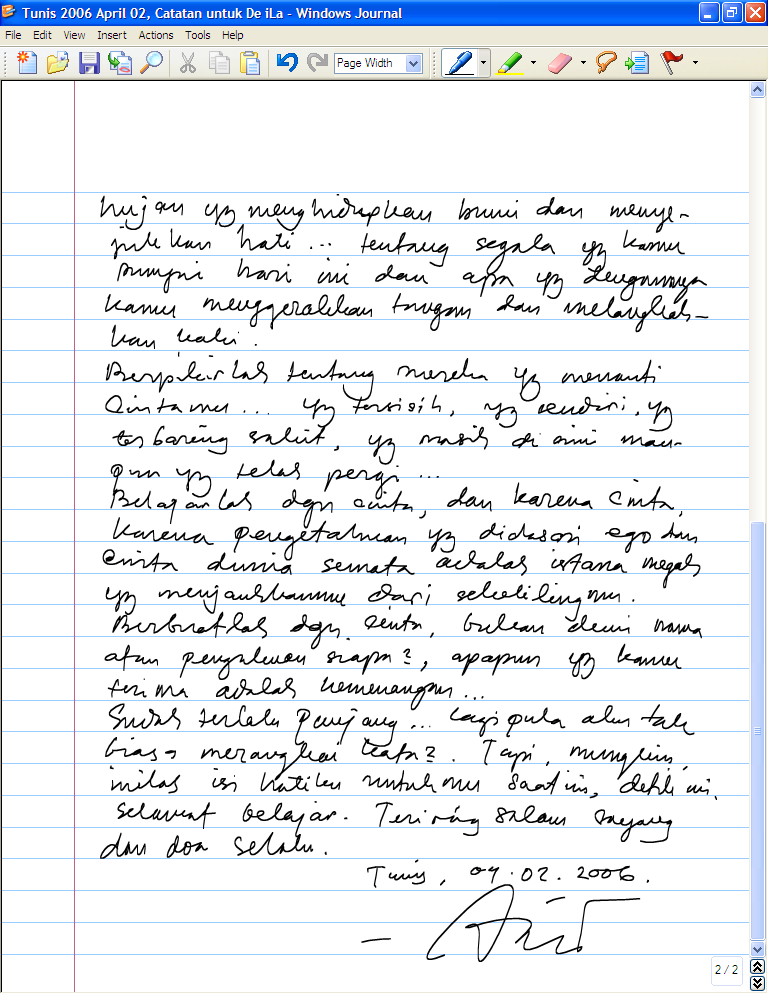 Tunis 2006 April 02, Catatan untuk De iLa - Windows Journal
File Edit View Insert Actions Tools Help
Page Width
hujan yg menghidupkan bumi dan menye-
jukkan hati ... tentang segala yg kamu
punyai hari ini dan apa yg dengannya
kamu menggerakkan tangan dan melangkah-
kan kaki.
Berpikirlah tentang mereka yg menanti
Cintamu ... yg tersisih, yg sendiri, yg
terbaring sakit, yg masih di sini mau-
pun yg telah pergi ...
Belajarlah dgn cinta, dan karena Cinta,
karena pengetahuan yg didasari ego dan
Cinta dunia semata adalah istana megah
yg menjauhkanmu dari sekelilingmu.
Berbuatlah dgn cinta, bukan demi nama
atau pengakuan siapa2, apapun yg kamu
terima adalah kemenangan ...
Sudah terlalu panjang ... lagipula aku tak
biasa merangkai kata2. Tapi, mungkin,
inilah isi hatiku untukmu saat ini, detik ini.
Selamat belajar. Teriring salam sayang
dan doa selalu.
Tunis, 04.02.2006.
2 / 2